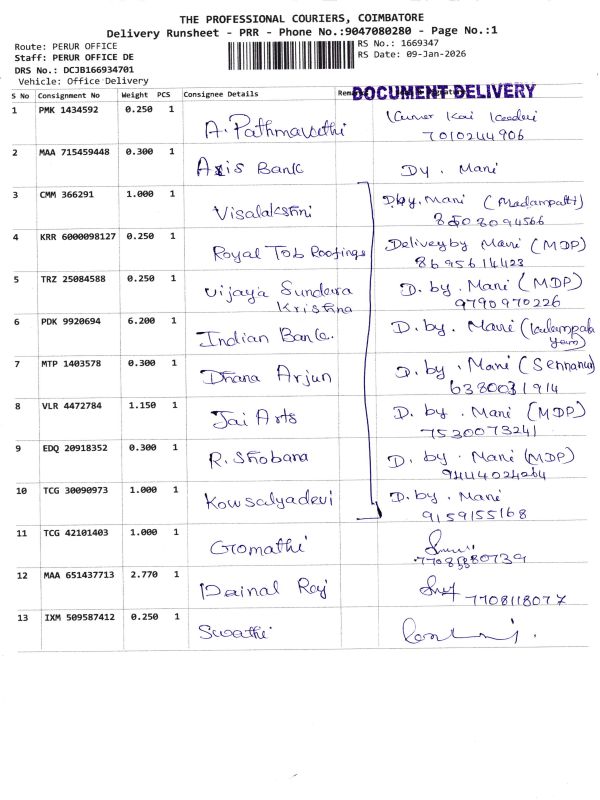 THE PROFESSIONAL COURIERS, COIMBATORE
Delivery Runsheet - PRR - Phone No.:9047080280 - Page No.:1
Route: PERUR OFFICE
RS No.: 1669347
Staff: PERUR OFFICE DE
RS Date: 09-Jan-2026
DRS No.: DCJB166934701
Vehicle: Office Delivery
DOCUMENT DELIVERY
S No Consignment No Weight PCS Consignee Details
1 PMK 1434592 0.250 1 A. Pathmavathi
7010244906
2 MAA 715459448 0.300 1 Axis Bank Dy. Mani
3 CMM 366291 1.000 1 Visalakshni Dby. Mani (Madampatti)
8508094566
4 KRR 6000098127 0.250 1 Royal Tob Roofings Delivey by Mani (MDP)
8695614423
5 TRZ 25084588 0.250 1 Vijaya Sundara D. by. Mani (MDP)
Krishna 9790970226
6 PDK 9920694 6.200 1 Indian Bank. D. by. Mani
7 MTP 1403578 0.300 1 Dhana Arjun D. by. Mani (Sennanur)
6380031914
8 VLR 4472784 1.150 1 Jai Arts D. by. Mani (MDP)
7530073241
9 EDQ 20918352 0.300 1 R. Shobana D. by. Mani (MDP)
10 TCG 30090973 1.000 1 Kowsalyadevi D. by. Mani
9159155168
11 TCG 42101403 1.000 1 Gomathi
12 MAA 651437713 2.770 1 Dainal Raj
7708118077
13 IXM 509587412 0.250 1 Swathi